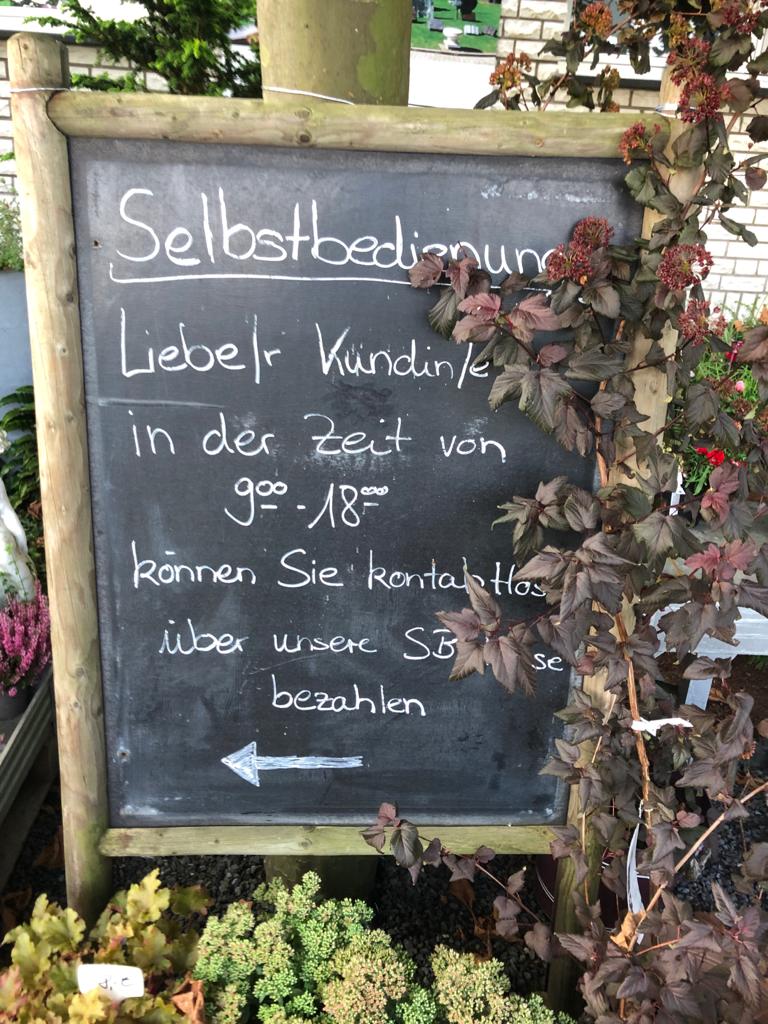 Selbstbedienung
Liebe/r Kundin/e
in der Zeit von
9⁰⁰ - 18⁰⁰
können Sie kontaktlos
über unsere SB se
bezahlen